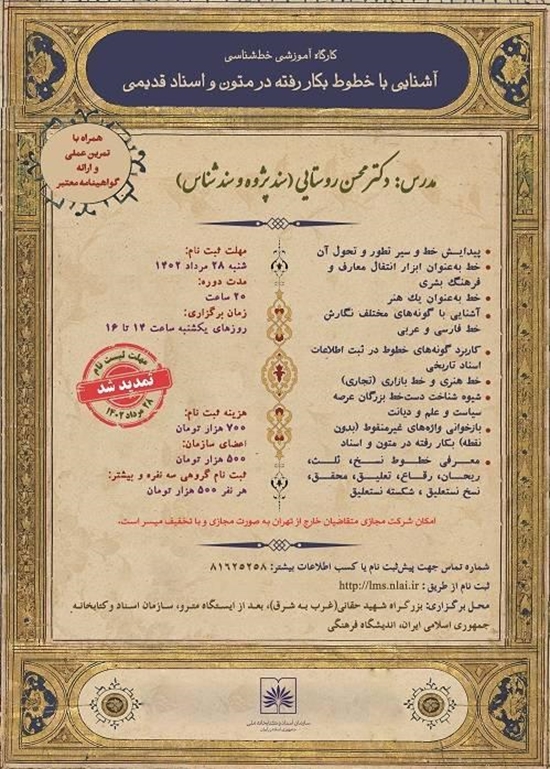 کارگاه آموزشی خط‌شناسی
آشنایی با خطوط بکار رفته در متون و اسناد قدیمی
همراه با
تمرین عملی
و ارائه
گواهینامه معتبر
مدرس: دکتر محسن روستایی (سند پژوه و سند شناس)
پیدایش خط و سیر تطور و تحول آن
خط به‌عنوان ابزار انتقال معارف و
فرهنگ بشری
خط به‌عنوان یك هنر
آشنایی با گونه‌های مختلف نگارش
خط فارسی و عربی
کاربرد گونه‌های خطوط در ثبت اطلاعات
اسناد تاریخی
خط هنری و خط بازاری (تجاری)
شیوه شناخت دست‌خط بزرگان عرصه
سیاست و علم و دیانت
بازخوانی واژه‌های غیرمنقوط (بدون
نقطه) بکار رفته در متون و اسناد
معرفی خطوط نسخ، ثلث،
ریحان، رقاع، تعلیق، محقق،
نسخ نستعلیق ، شکسته نستعلیق
مهلت ثبت نام:
شنبه ۲۸ مرداد ۱۴۰۲
مدت دوره:
۲۰ ساعت
زمان برگزاری:
روزهای یکشنبه ساعت ۱۴ تا ۱۶
مهلت لیست نام
تمدید شد
۲۸ مرداد ۱۴۰۲
هزینه ثبت نام:
۷۰۰ هزار تومان
اعضای سازمان:
۵۰۰ هزار تومان
ثبت نام گروهی سه نفره و بیشتر:
هر نفر ۵۰۰ هزار تومان
امکان شرکت مجازی متقاضیان خارج از تهران به صورت مجازی و با تخفیف میسر است.
شماره تماس جهت پیش‌ثبت نام یا کسب اطلاعات بیشتر: ۸۱۶۲۵۲۵۸
ثبت نام از طریق : http://lms.nlai.ir
محل برگزاری: بزرگراه شهید حقانی(غرب به شرق)، بعد از ایستگاه مترو، سازمان اسناد و کتابخانه
جمهوری اسلامی ایران، اندیشگاه فرهنگی
سازمان اسناد و کتابخانه ملی
جمهوری اسلامی ایران